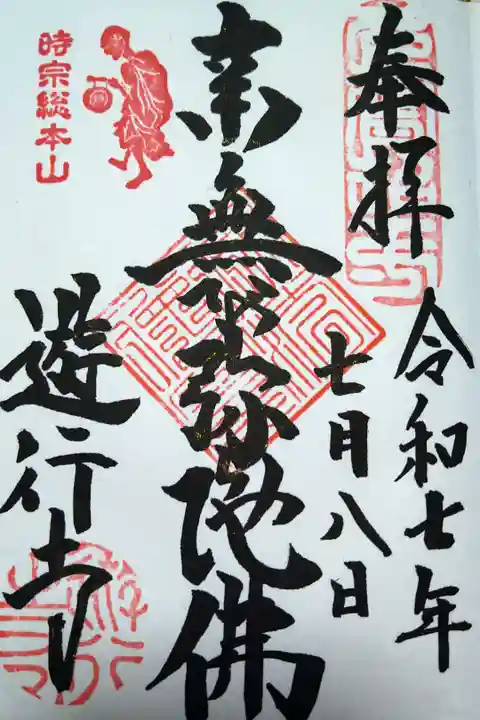 奉拝
令和七年
七月八日
南無阿弥陀佛
時宗総本山
遊行寺